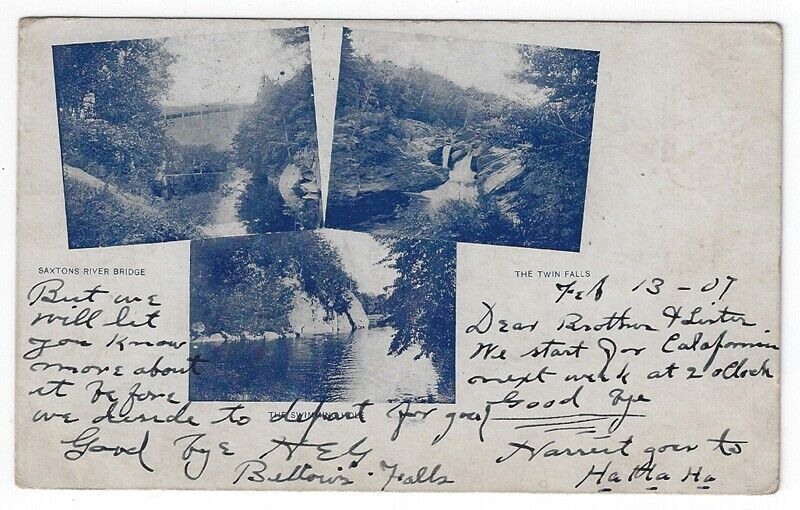 SAXTONS RIVER BRIDGE
THE TWIN FALLS
Feb 13-07
Dear Brother & Sister.
We start for Calafornia
next week at 2 oClock
Good bye
Harriet goes to
Ha Ha Ha
But we
will let
you know
more about
it before
THE SWIMMING HOLE
we decide to depart for good
Good bye H E G
Bellows Falls